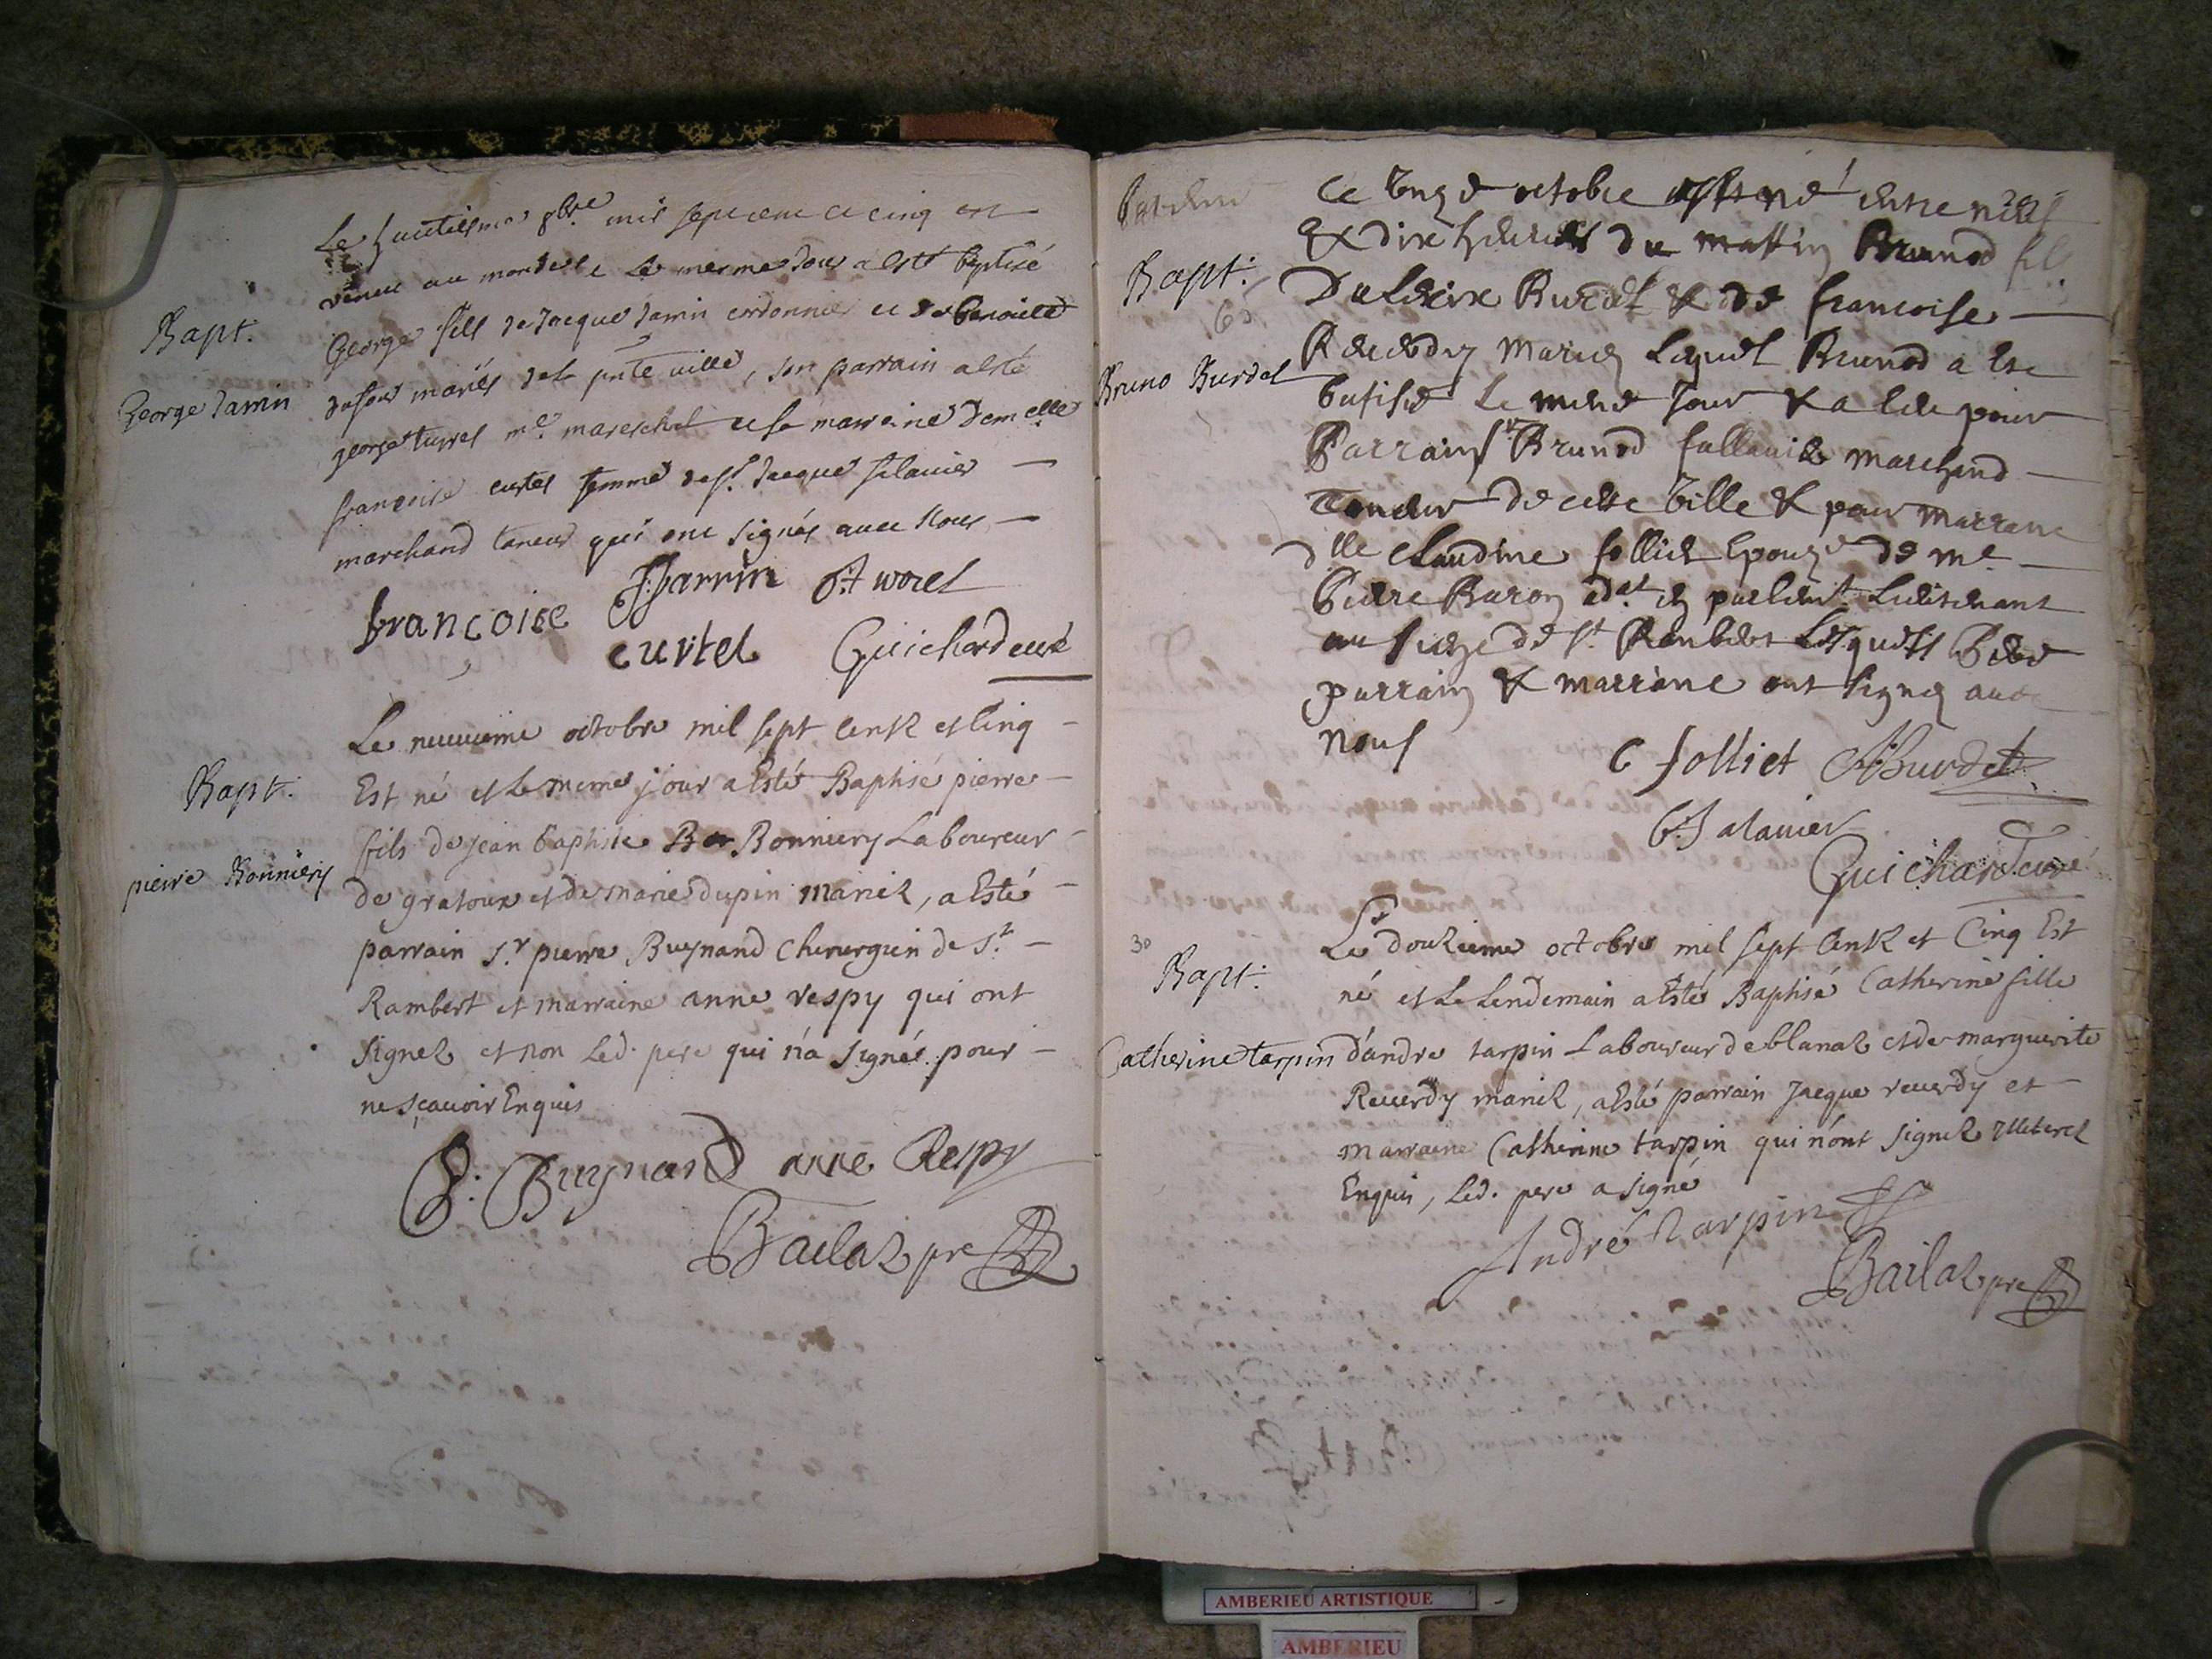 Bapt.
George Jamin
Le huictiesme 8bre mil sept cent et cinq est
venu au monde et le mesme jour a esté baptisé
George fils de Jacque Jamin cordonnier et de benoite
mariés de la pnte ville, son parrain a esté
george me. mareschal et sa marraine Demelle
françoise curtet femme de sr. Jacque falavier
marchand taneur qui ont signés avec Nous
J Jamin
françoise curtet Guichard curé
Bapt.
pierre Bonniery
Le neuvieme octobre mil sept centz et Cinq
Est né et Le meme jour a Esté Baptisé pierre
fils de jean baptiste Bonniery Laboureur
de gratoux et de marie dupin mariez, a Esté
parrain S.r pierre Buynand Chirurgien de S.t
Rambert et marraine anne vespy qui ont
signez et non Led. pere qui n'a signés pour
ne sçavoir Enquis
P. Buynand anne Respy
Bailaz pre
Bapt.
Bruno Burdet
Ce octobre est né entre neuf
Et dix heures du mattin Brunod fils
Burdet & de francoise
mariez Lequel Brunod a este
batisé Le meme Jour & a heu pour
Parrain Sr Brunod fallavier marchand
Taneur de cette Ville & pour marrane
dlle Claudine folliet Epouze de me
Pierre Baron adat en parlemt Lieutenant
au siege de St Rambert Lesquels Pere
parrain & marrane ont signez avec
nous
C folliet Burdet
B falavier
Guichard curé
30
Bapt.
Catherine tarpin
Le douzieme octobre mil sept Centz et Cinq Est
né et Le Lendemain a Estés Baptisé Catherine fille
d'andre tarpin Laboureur de blanaz et de marguerite
Reverdy mariez, a Esté parrain Jacque reverdy et
marraine Catherine tarpin qui n'ont signez
Enquis, Led. pere a signé
André tarpin
Bailaz pre
AMBERIEU ARTISTIQUE
AMBERIEU